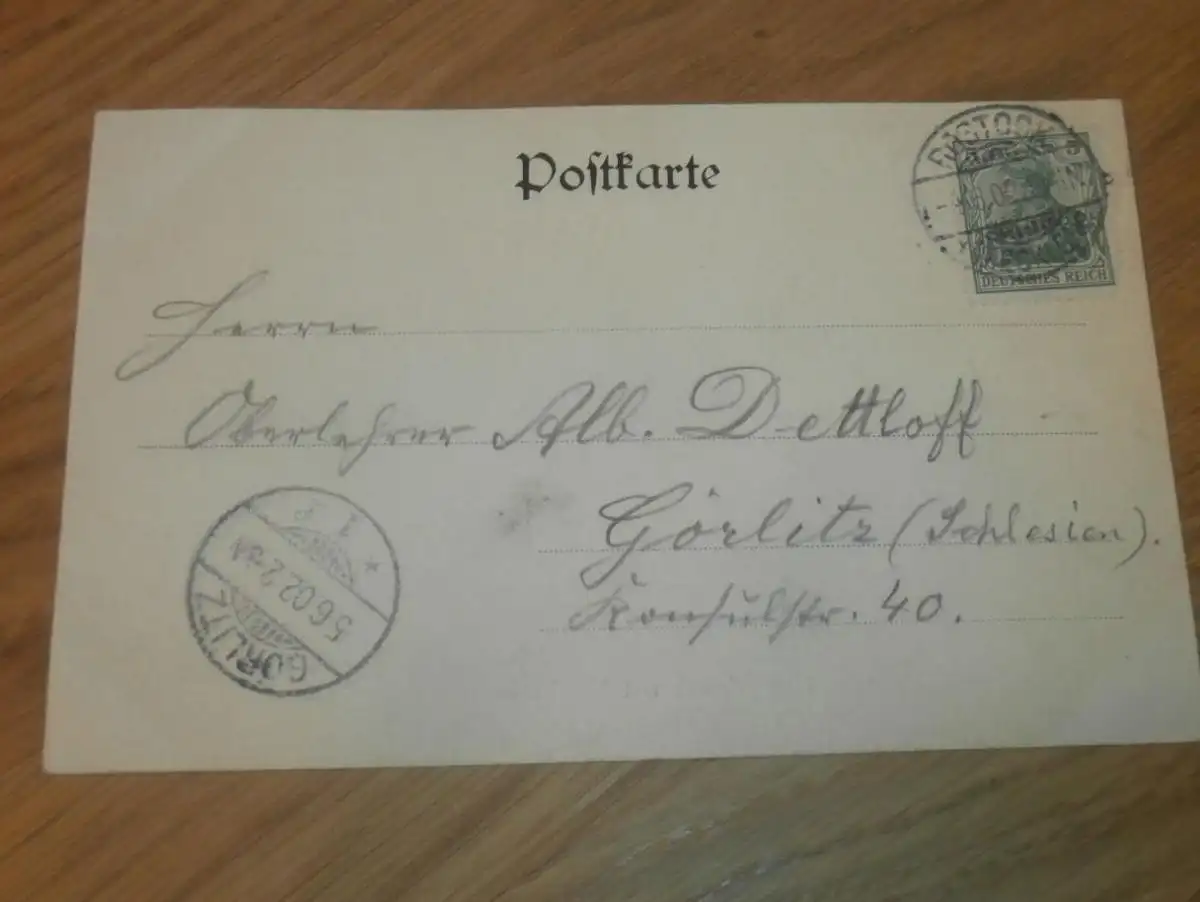 Postkarte
ROSTOCK
DEUTSCHES REICH
Herrn
Oberlehrer Alb. Dettloff
Görlitz (Schlesien).
Konsulstr. 40.
GÖRLITZ
5 6 02 2-3 N
* 1 f